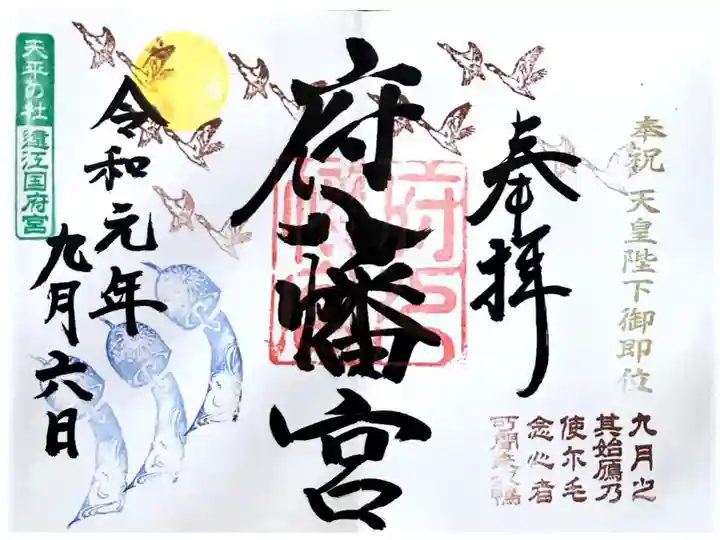 奉祝 天皇陛下御即位
九月之
其始鴈乃
使尓毛
念心者
可聞来奴鴨
奉拝
府八幡宮
府八幡宮
令和元年
九月六日
天平の社 遠江国府宮